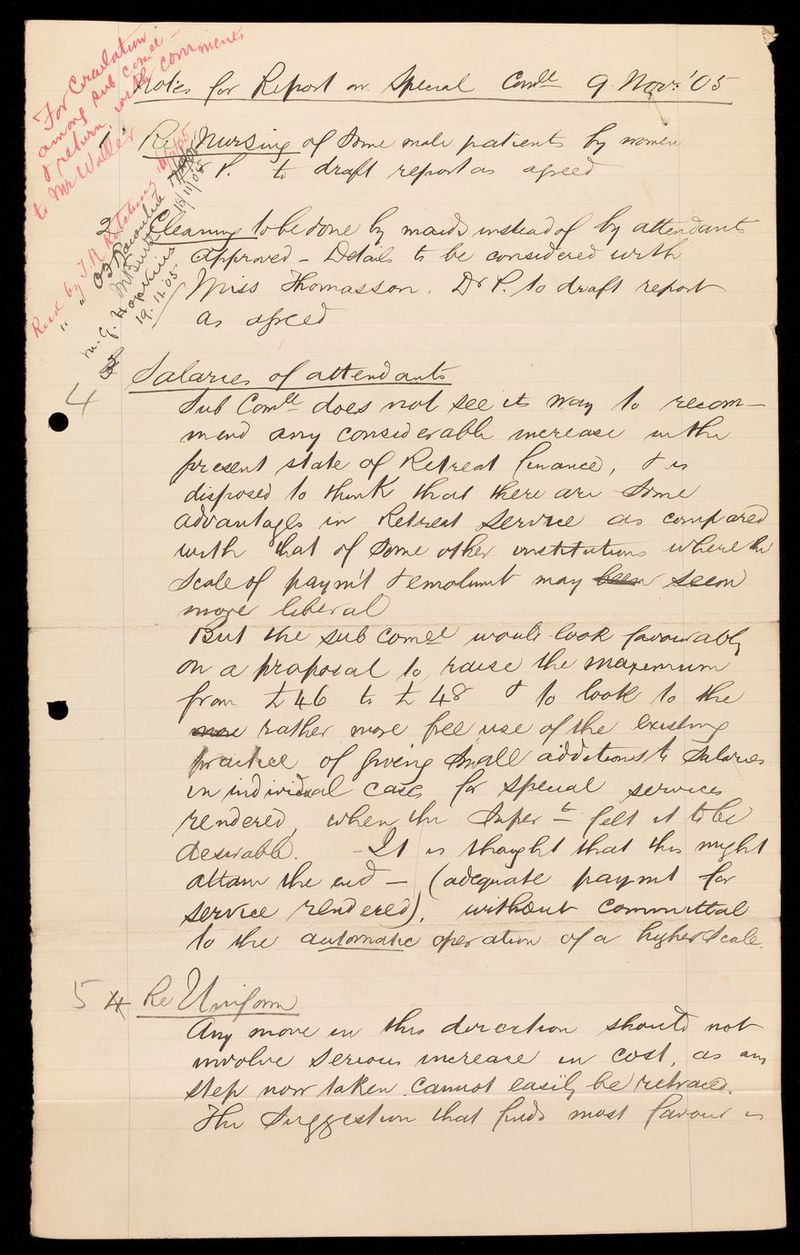 For Circulation
among sub comee
& return, with comments
to Mr Waller
Read by T.R.
" "
M. G. Hopkins
19.11.05
18/11/05
Notes for Report on Special Comtt 9 Novr '05
1 Re Nursing of some male patients by women
P. to draft report as agreed
2 Cleaning to be done by maids instead of by attendants
approved – Details to be considered with
Miss Thomasson. Dr P. to draft report
as agreed
4 Salaries of attendants
Sub Comtt does not see its way to recom-
mend any considerable increase in the
present state of Retreat finance, & is
disposed to think that there are some
advantages in Retreat service as compared
with that of some other institutions where the
scale of paym't & emolumt may been seem
more liberal
But the sub comee would look favourably
on a proposal to raise the maximum
from £46 to £48 & to look to the
more rather more free use of the existing
practice of giving small additions to salaries
in individual cases for special services
rendered, when the Supert felt it to be
desirable. – It is thought that this might
attain the end – (adequate paymt for
service rendered), without committal
to the automatic operation of a higher scale.
5 4 Re Uniform
Any move in this direction should not
involve serious increase in cost, as any
step now taken cannot easily be retraced.
The suggestion that finds most favour is